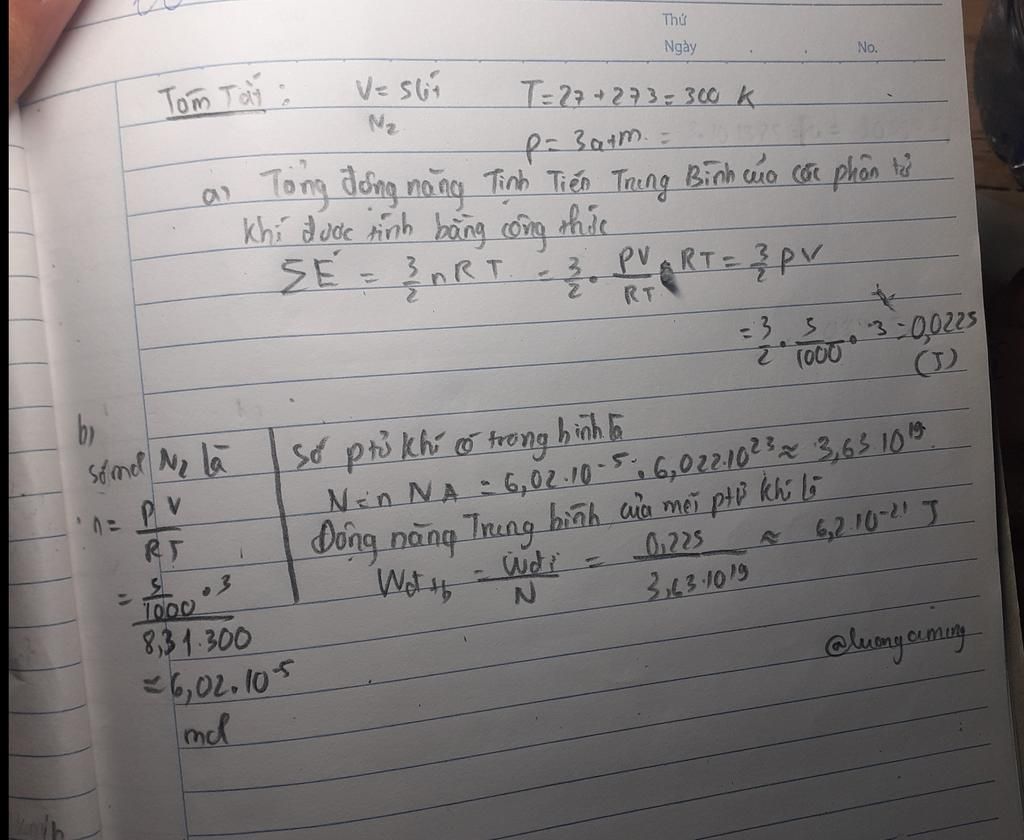 Thứ
Ngày . . No.
Tóm Tắt : V = 5 lít T = 27 + 273 = 300 K
N₂
p = 3atm. =
a, Tổng động năng Tịnh Tiến Trung Bình của các phân tử
khí được tính bằng công thức
ΣE = 3/2 nRT = 3/2 . PV/RT . RT = 3/2 pV
= 3/2 . 5/1000 . 3 = 0,0225
(J)
b,
số mol N₂ là
n = pV/RT
= 5/1000 . 3 / 8,31.300
= 6,02.10⁻⁵
mol
Số ptử khí có trong bình là
N = n NA = 6,02.10⁻⁵. 6,022.10²³ ≈ 3,63.10¹⁹
Động năng Trung bình của mỗi ptử khí là
Wđtb = Wđi/N = 0,225/3,63.10¹⁹ ≈ 6,2.10⁻²¹ J
@luongaiming